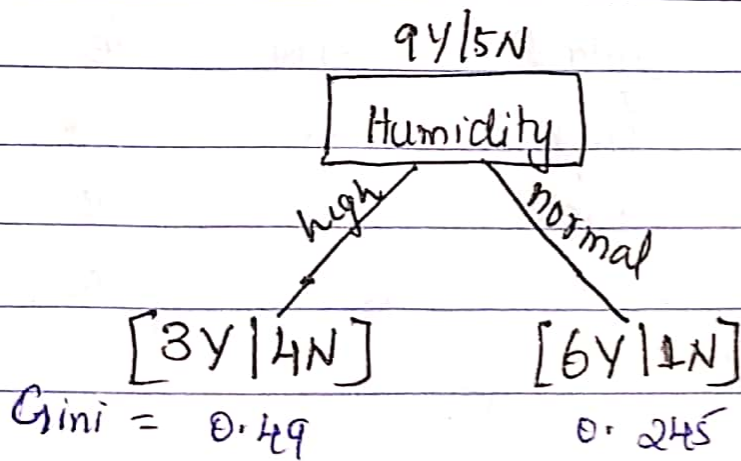 9Y|5N
Humidity
high normal
[3Y|4N] [6Y|1N]
Gini = 0.49 0.245